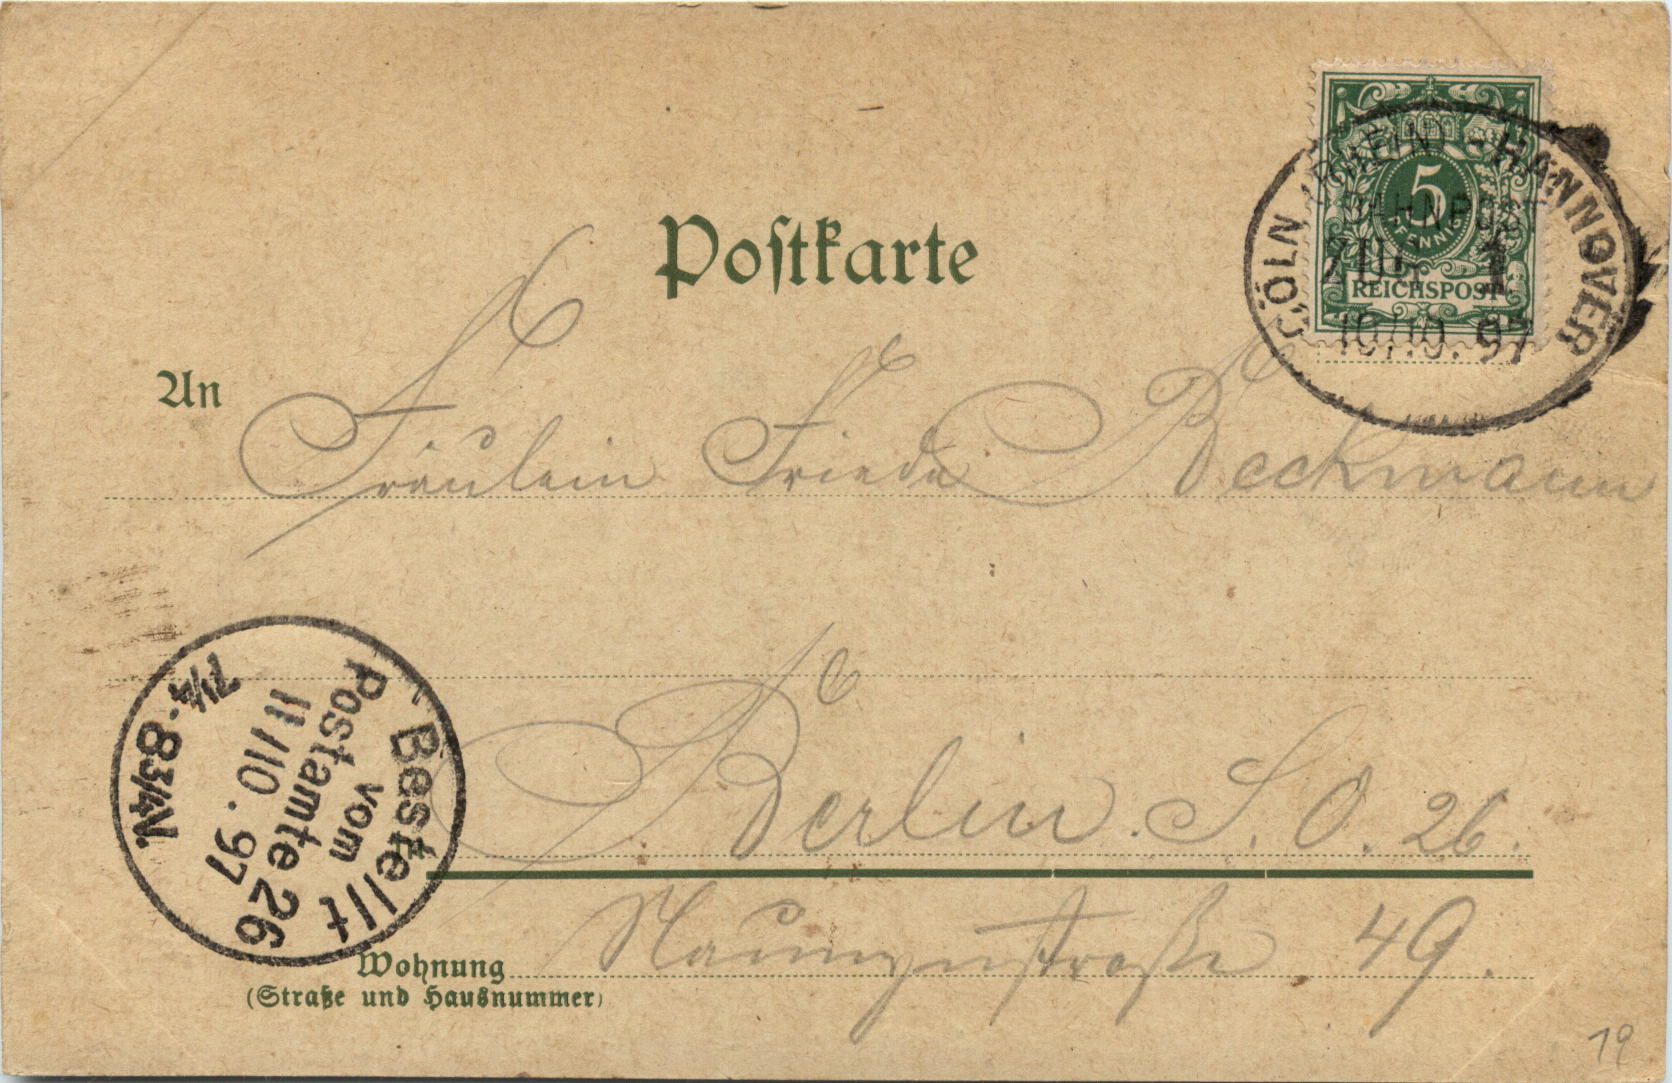 Postkarte
5
PFENNIG
REICHSPOST
CÖLN (RHEIN) - HANNOVER
BAHNPOST
ZUG 1
10/10. 97
An
Fräulein Frieda Beckmann
Berlin. S. O. 26.
Naunynstraße 49.
Wohnung
(Straße und Hausnummer)
Bestellt
vom
Postamte 26
11/10. 97
7 1/4 - 8 3/4 N.
19